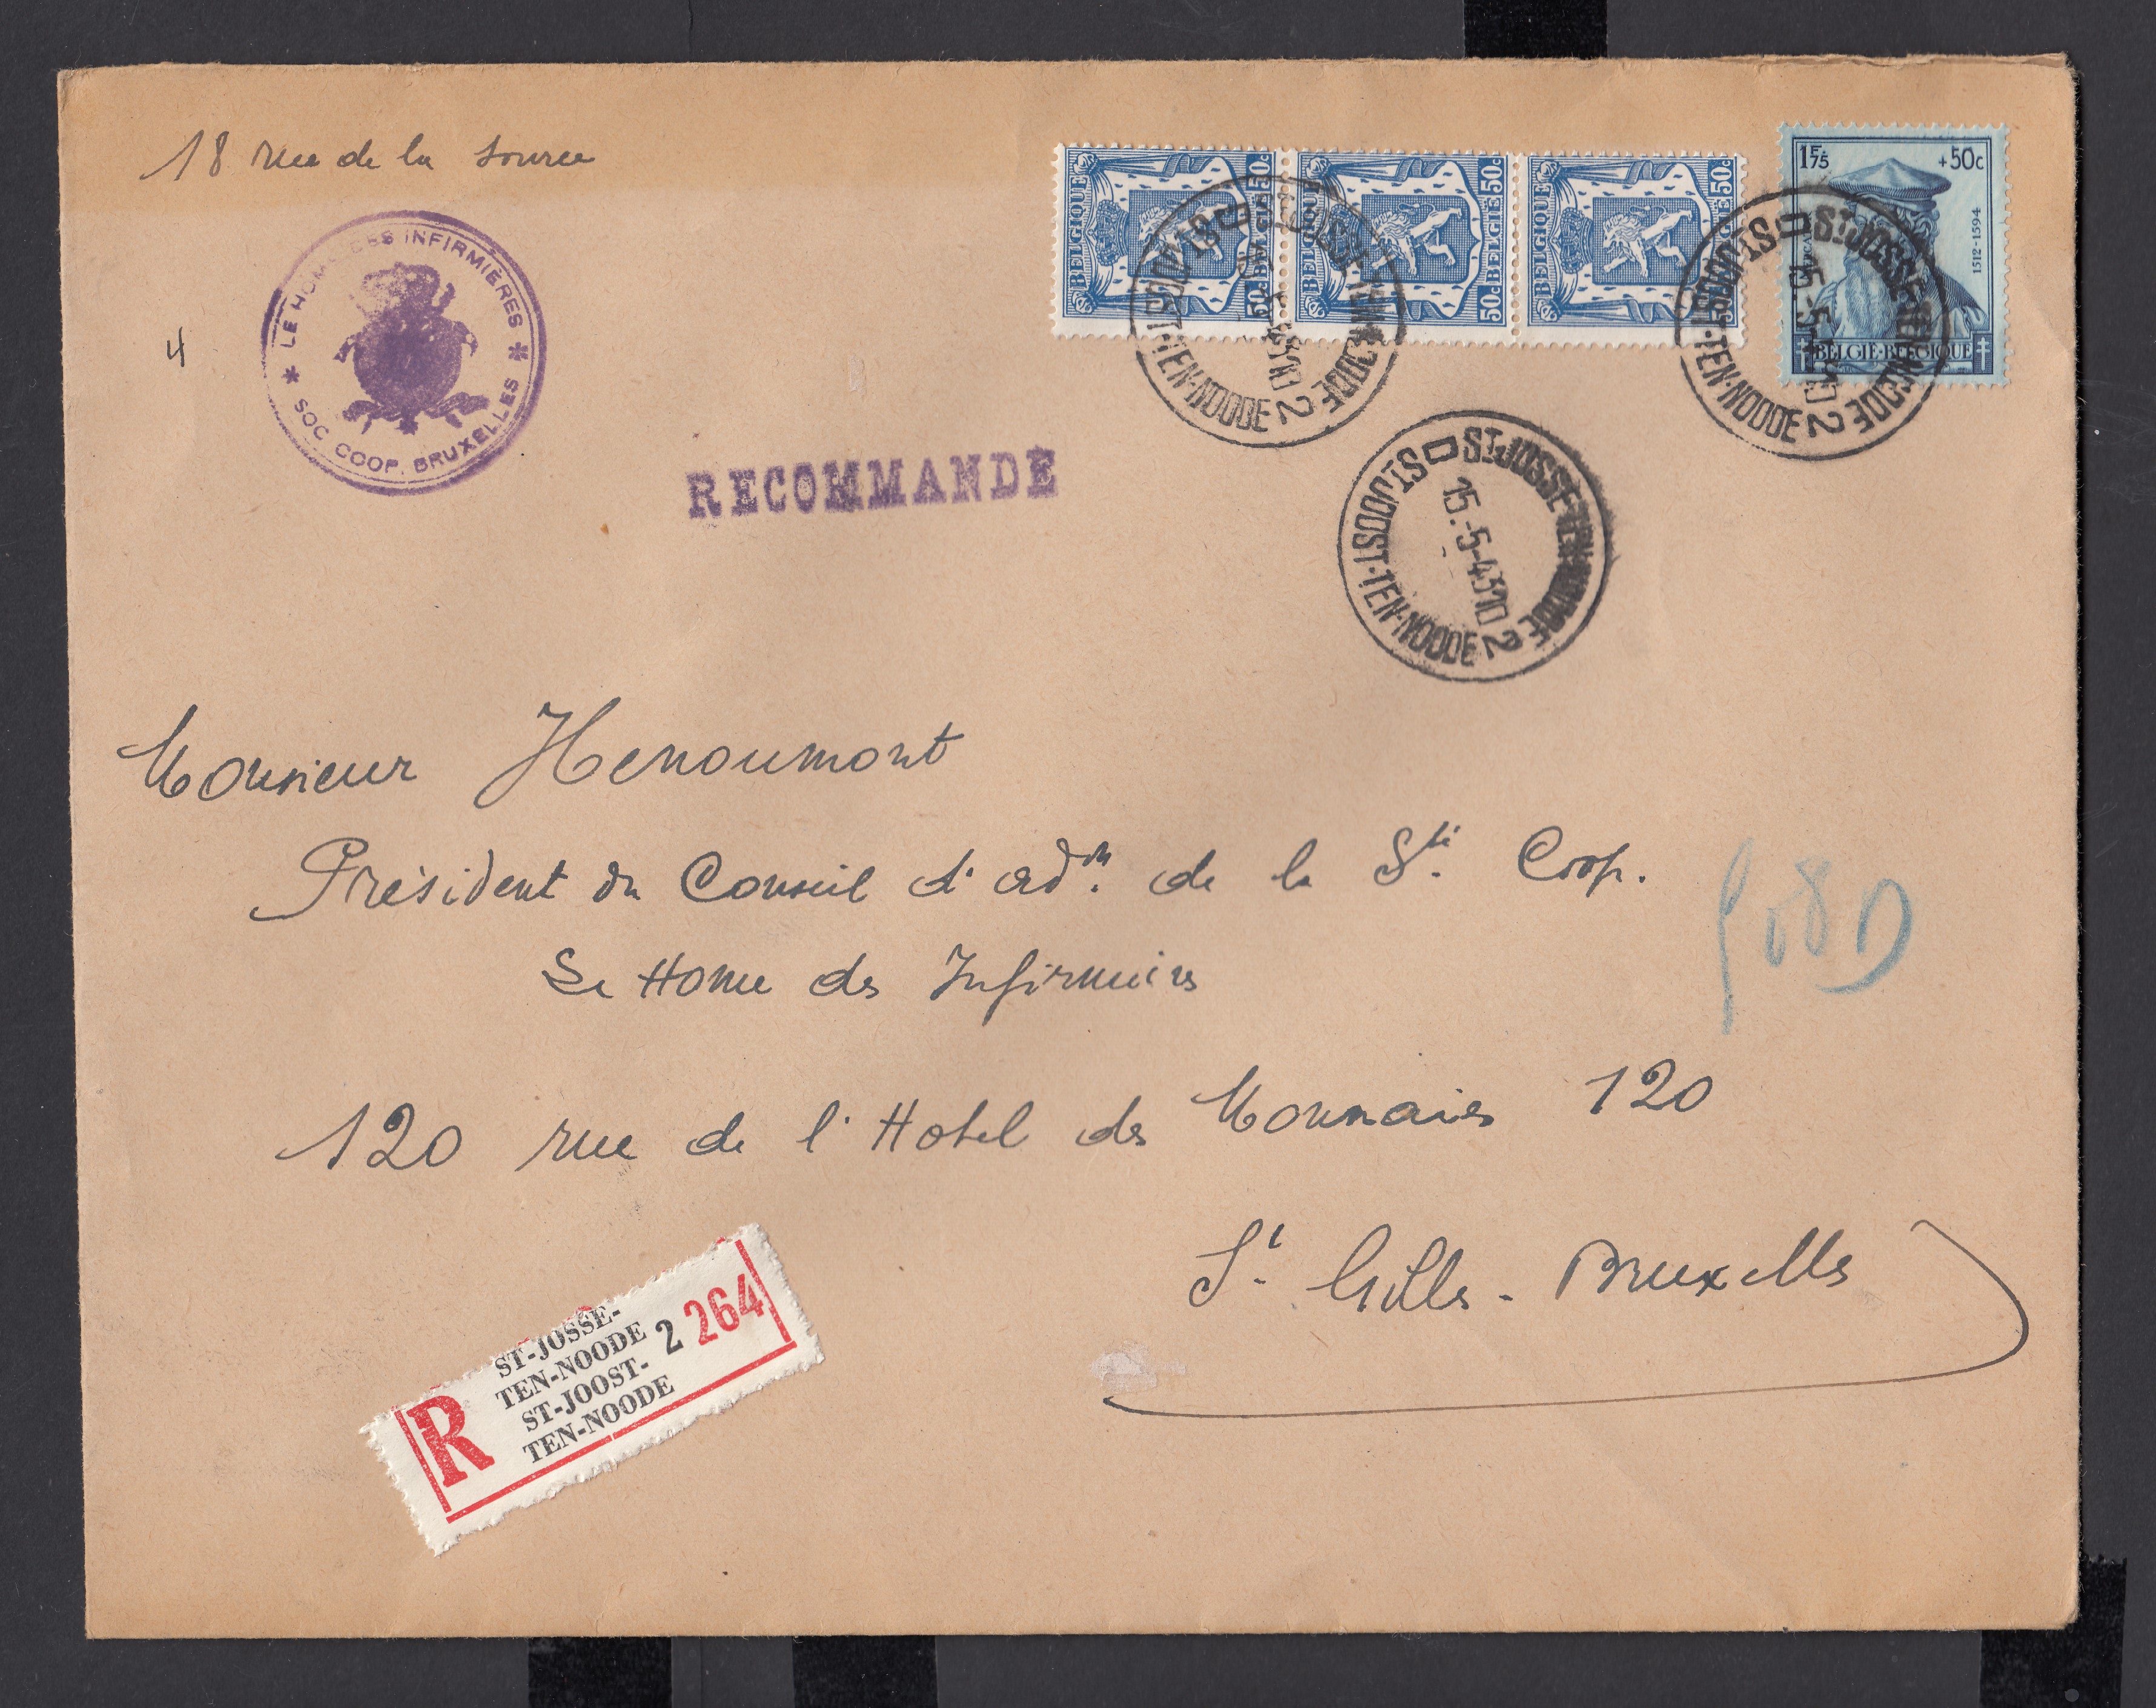 18 rue de la Source
LE HOME DES INFIRMIÈRES
SOC. COOP. BRUXELLES
4
RECOMMANDÉ
BELGIQUE 50c
50c BELGIË
BELGIQUE 50c
50c BELGIË
BELGIQUE 50c
50c BELGIË
1F75 +50c
1512-1594
BELGIE-BELGIQUE
ST JOSSE-TEN-NOODE 2
ST JOOST-TEN-NOODE
ST JOSSE-TEN-NOODE 2
15.-5-43 10
ST JOOST-TEN-NOODE
ST JOSSE-TEN-NOODE 2
15.-5-43 10
ST JOOST-TEN-NOODE
Monsieur Henoumont
Président du Conseil d'adon. de la Sté. Coop.
Le Home des Infirmières
120 rue de l'Hotel des Monnaies 120
St. Gilles - Bruxelles
R
ST-JOSSE-
TEN-NOODE
ST-JOOST-
TEN-NOODE
2 264